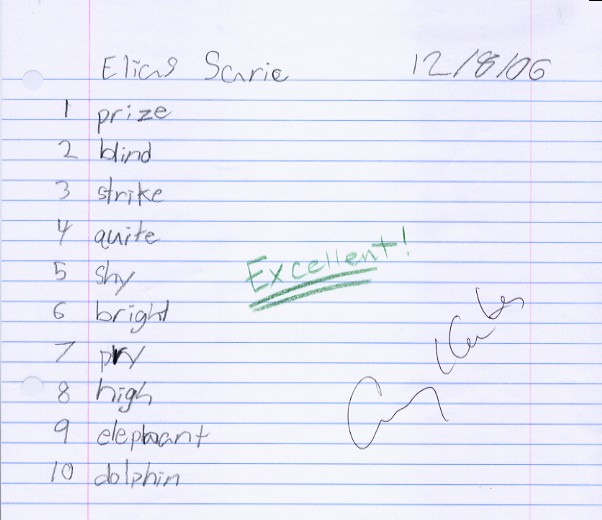 Elias Scarie 12/8/06
1 prize
2 blind
3 strike
4 quite
5 shy
Excellent!
6 bright
7 pry
8 high
9 elephant
10 dolphin